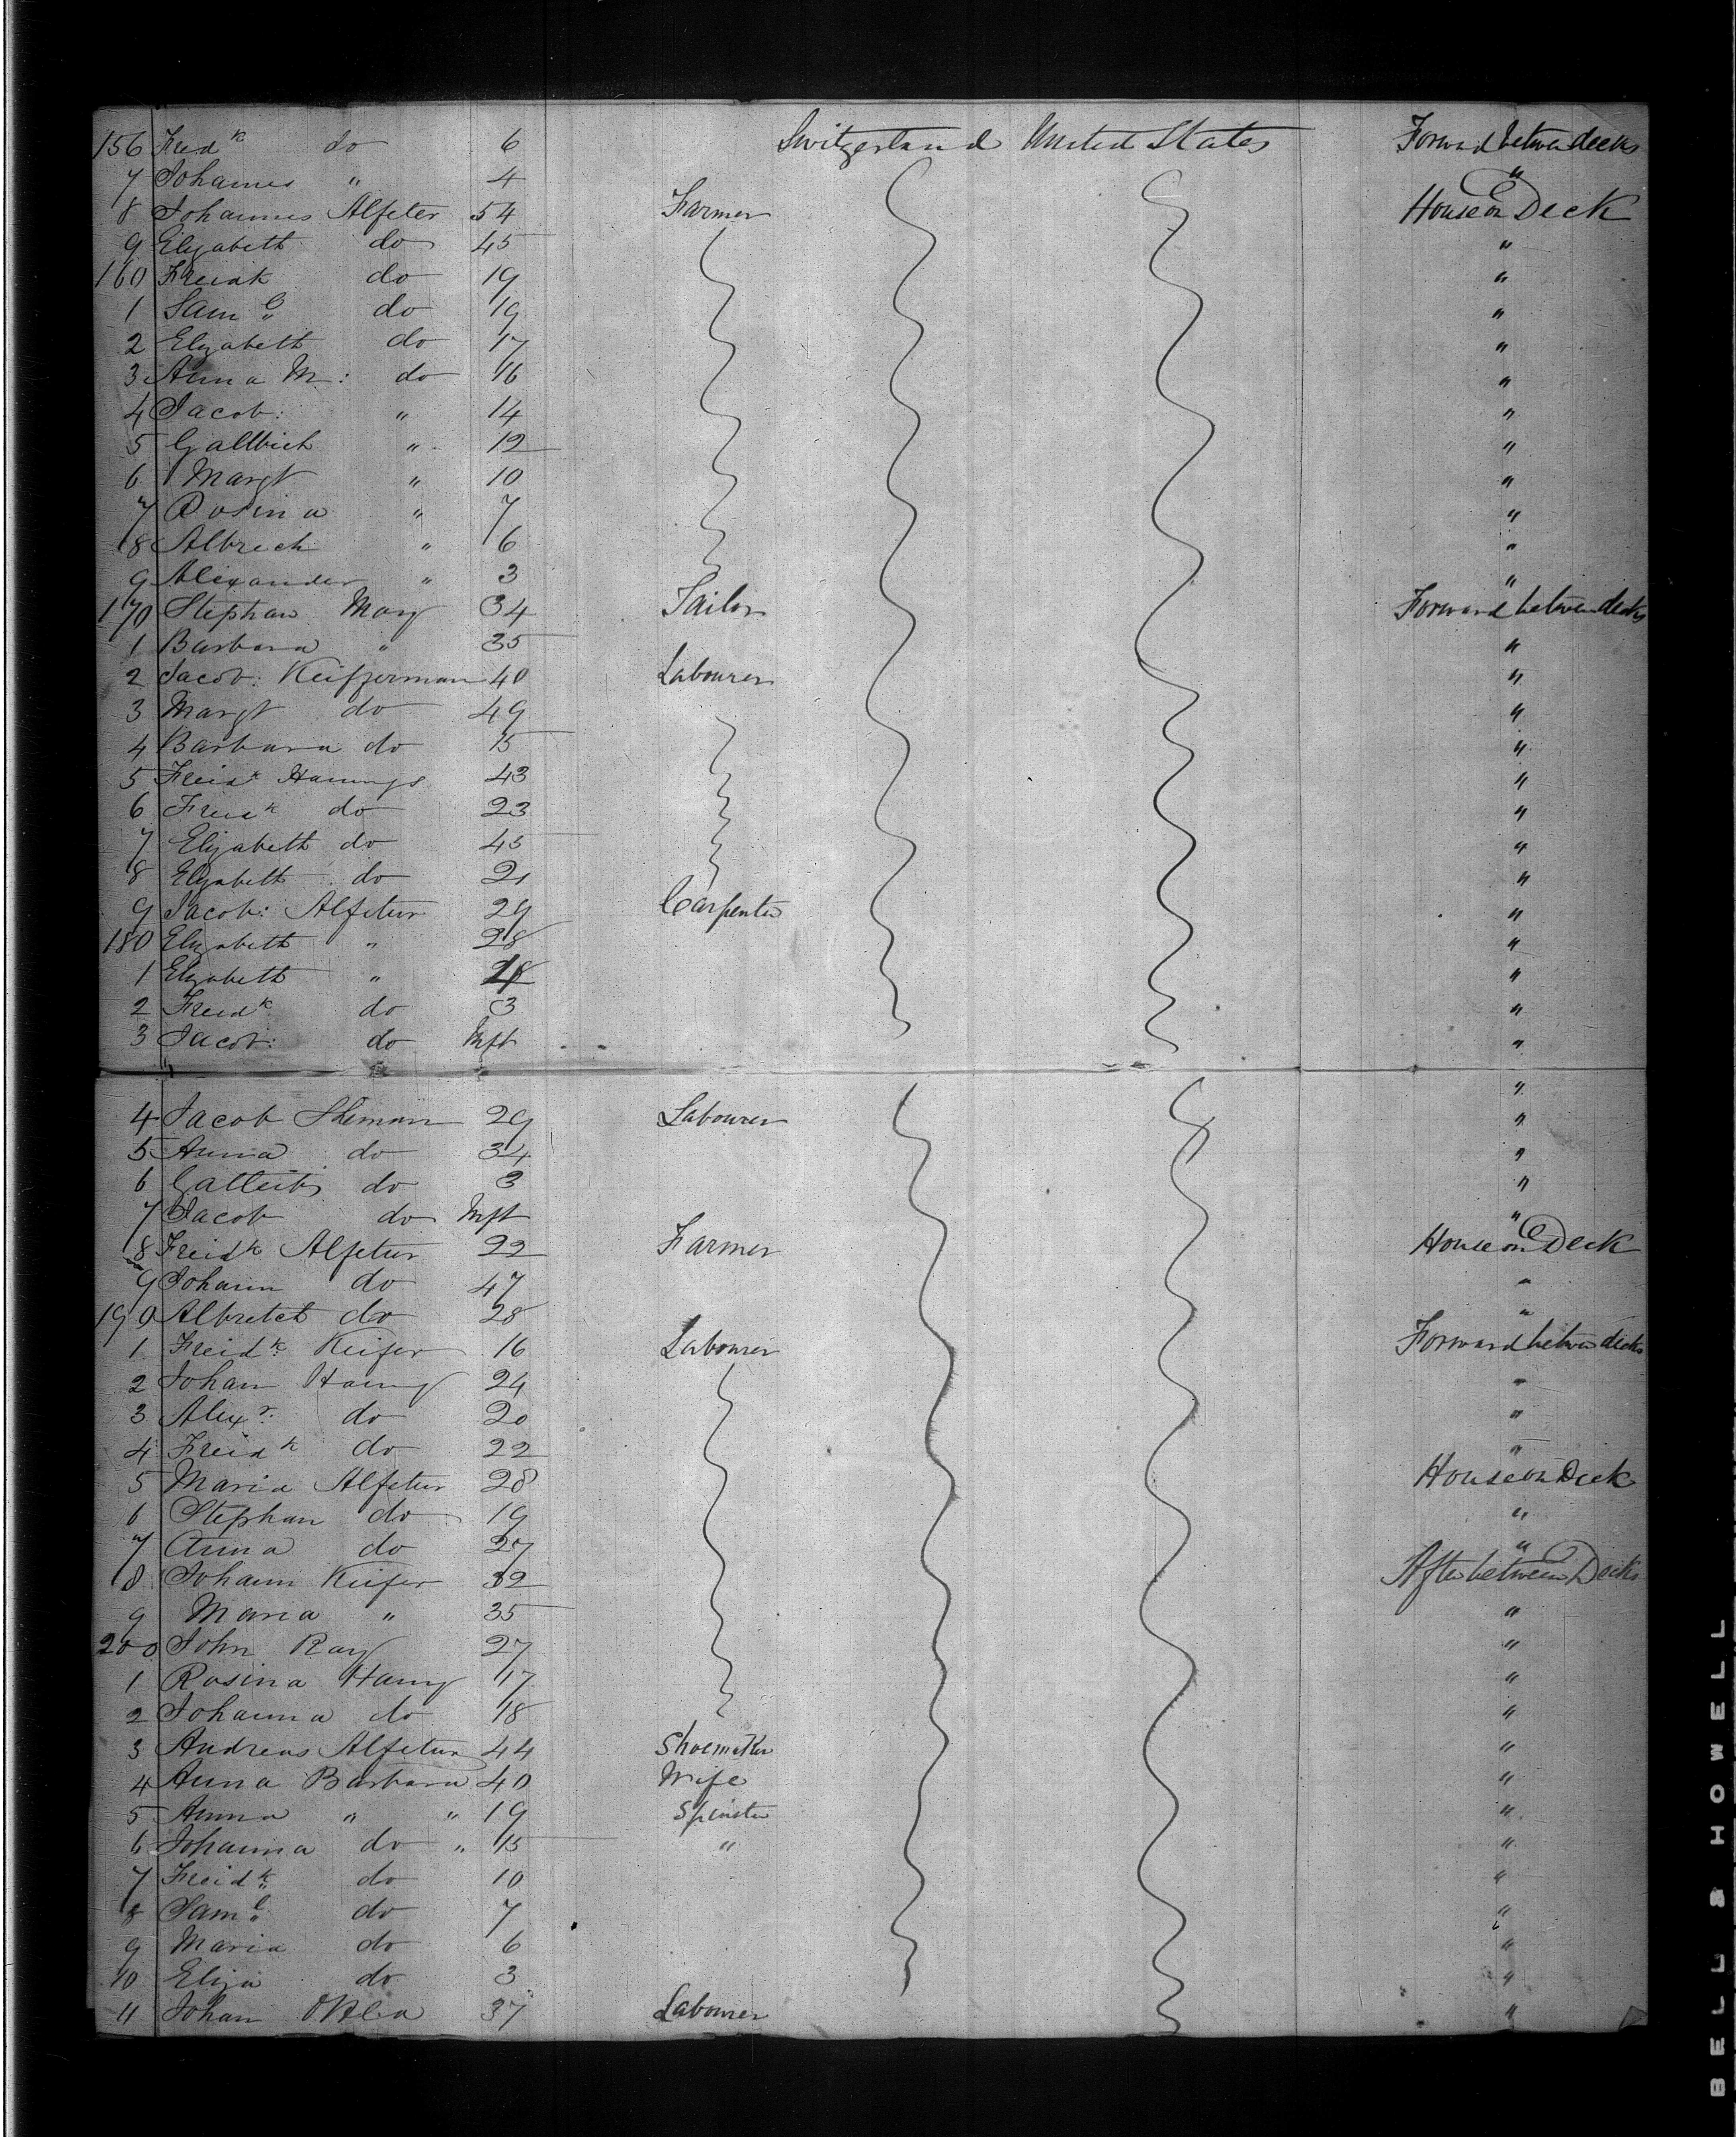 156 Fredk do 6 Switzerland United States Forward between decks
7 Johannes " 4 "
8 Johannes Alfeter 54 Farmer House on Deck
9 Elizabeth do 45 "
160 Freidk do 19 "
1 Saml do 19 "
2 Elizabeth do 17 "
3 Anna M: do 16 "
4 Jacob: " 14 "
5 " 12 "
6 Margt " 10 "
7 Rosina " 7 "
8 Albrech " 6 "
9 Alexander " 3 "
170 Stephan May 34 Tailor Forward between decks
1 Barbara " 35 "
2 Jacob: Keifferman 40 Labourer "
3 Margt do 49 "
4 Barbara do 15 "
5 Freidk 43 "
6 Freidk do 23 "
7 Elizabeth do 45 "
8 Elizabeth do 21 "
9 Jacob: Alfetur 29 Carpenter "
180 Elizabeth " 28 "
1 Elizabeth " "
2 Freidk do 3 "
3 Jacob: do Inft "
"
4 Jacob 29 Labourer "
5 Anna do 34 "
6 do 3 "
7 Jacob do Inft "
8 Freidk Alfetur 22 Farmer House on Deck
9 Johann do 47 "
190 Albretch do 28 "
1 Freidk Keifer 16 Labourer Forward between decks
2 Johan Haing 24 "
3 Alexr. do 20 "
4 Freidk do 22 "
5 Maria Alfetur 28 House on Deck
6 Stephan do 19 "
7 Anna do 27 "
8 Johann Keifer 32 After between Decks
9 Maria " 35 "
200 John Ray 27 "
1 Rosina Haing 17 "
2 Johanna do 18 "
3 Andreas Alfetur 44 Shoemaker "
4 Anna Barbara 40 Wife "
5 Anna " " 19 Spinster "
6 Johanna do " 15 " "
7 Freidk do 10 "
8 Saml do 7 "
9 Maria do 6 "
10 Eliza do 3 "
11 Johan 37 Labourer "
BELL & HOWELL